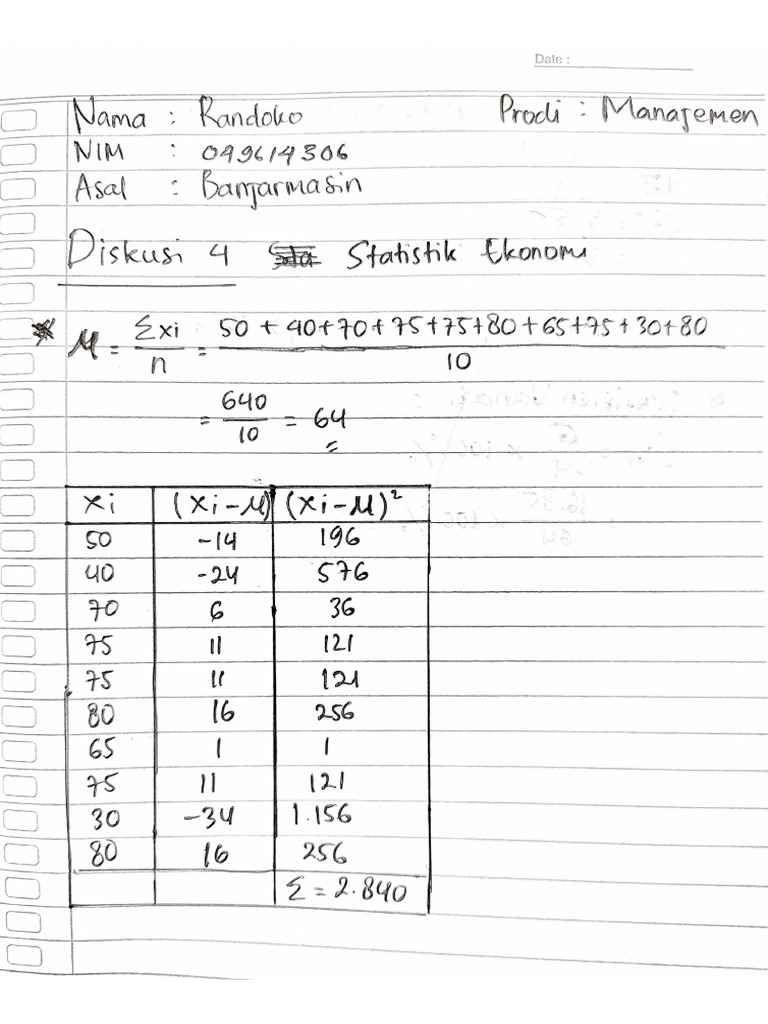 Date :
Nama : Randoko Prodi : Manajemen
NIM : 049614306
Asal : Banjarmasin
Diskusi 4 Statistik Ekonomi
* μ = Σxi / n = 50 + 40+70+75+75+80+65+75+30+80 / 10
= 640 / 10 = 64
xi (xi-μ) (xi-μ)²
50 -14 196
40 -24 576
70 6 36
75 11 121
75 11 121
80 16 256
65 1 1
75 11 121
30 -34 1.156
80 16 256
Σ = 2.840